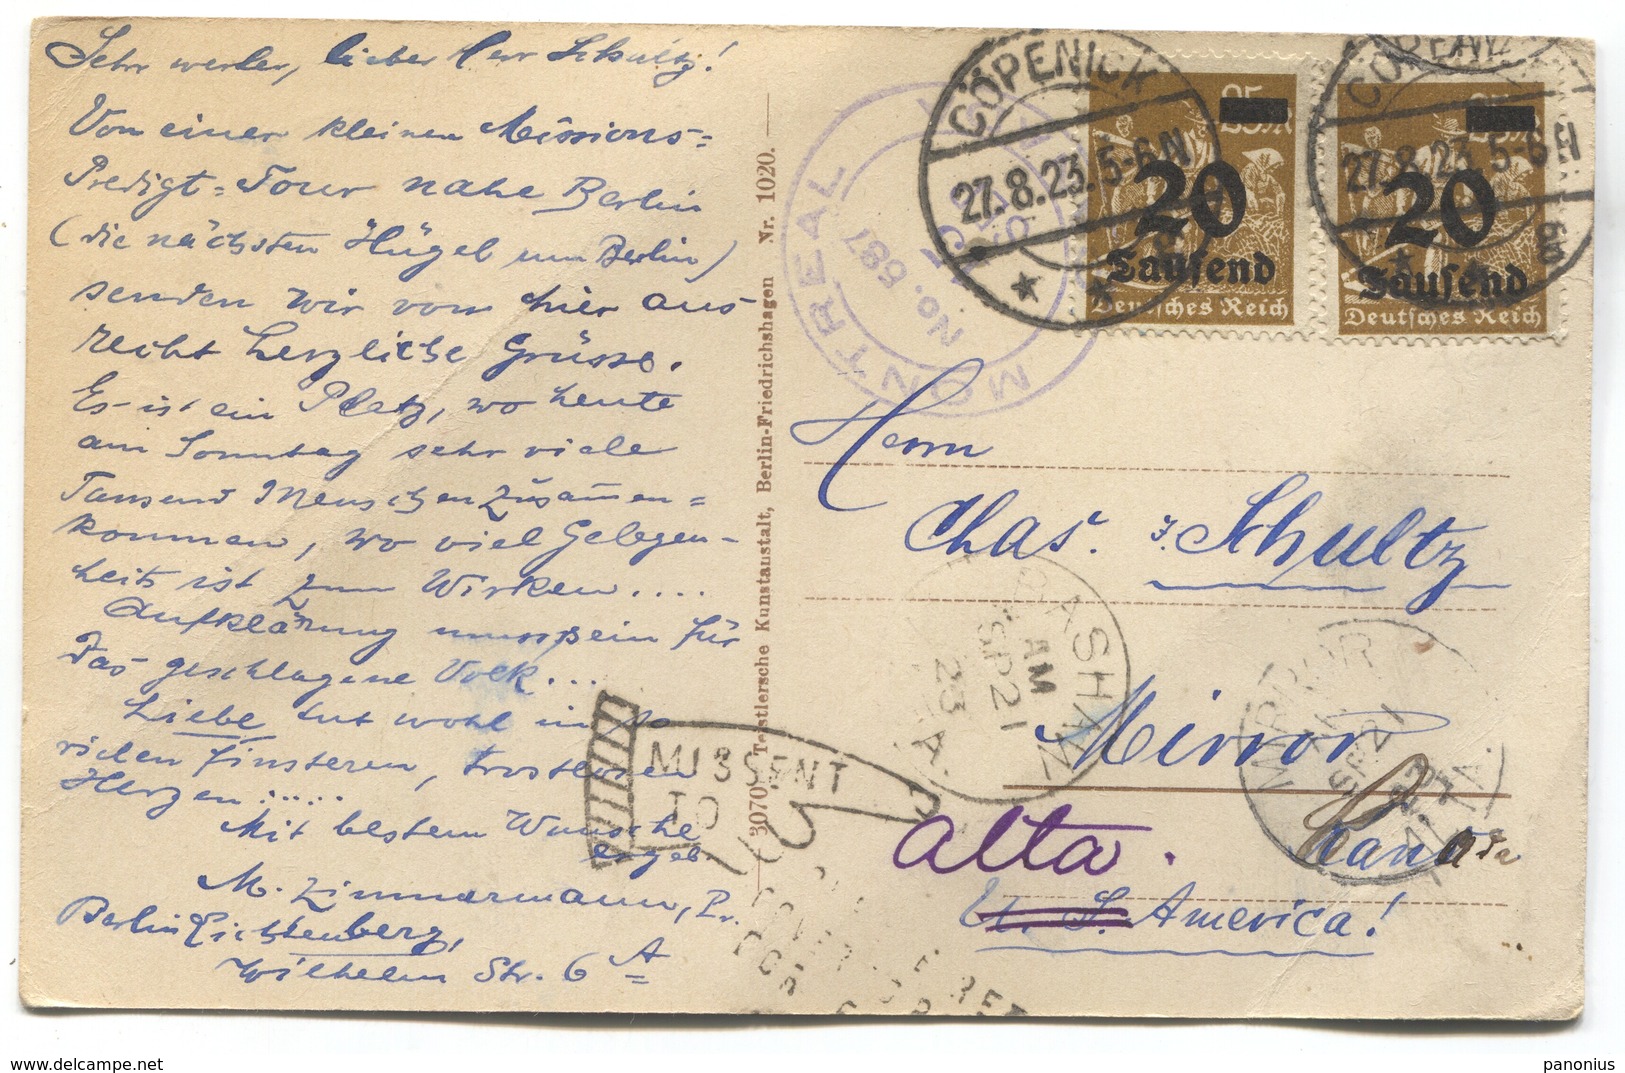 Sehr werter, lieber Herr Schultz!
Von einer kleinen Missions=
Predigt=Tour nahe Berlin
(die nächsten Hügel um Berlin)
senden wir von hier aus
recht herzliche Grüsse.
Es ist ein Platz, wo heute
am Sonntag sehr viele
Tausend Menschen zusammen=
kommen, wo viel Gelegen-
heit ist zum Wirken....
Aufklärung muss sein für
das geschlagene Volk...
Liebe tut wohl in so
vielen finsteren, trostlosen
Herzen.....
Mit bestem Wunsche
ergeb.
M. Zimmermann, Pr.
Berlin Lichtenberg,
Wilhelm Str. 6 A
3070 Teistlersche Kunstaustalt, Berlin-Friedrichshagen Nr. 1020.
MONTREAL
No. 597
CÖPENICK
27.8.23. 5-6 N
CÖPENICK
27.8.23. 5-6 N
25
20
Tausend
Deutsches Reich
25
20
Tausend
Deutsches Reich
Herrn
Chas. Schultz
Mirror
Alta.
Canada
U. S. America!
AM
SP 21
23
MIRROR
SP 21
ALTA.
MISSENT
TO